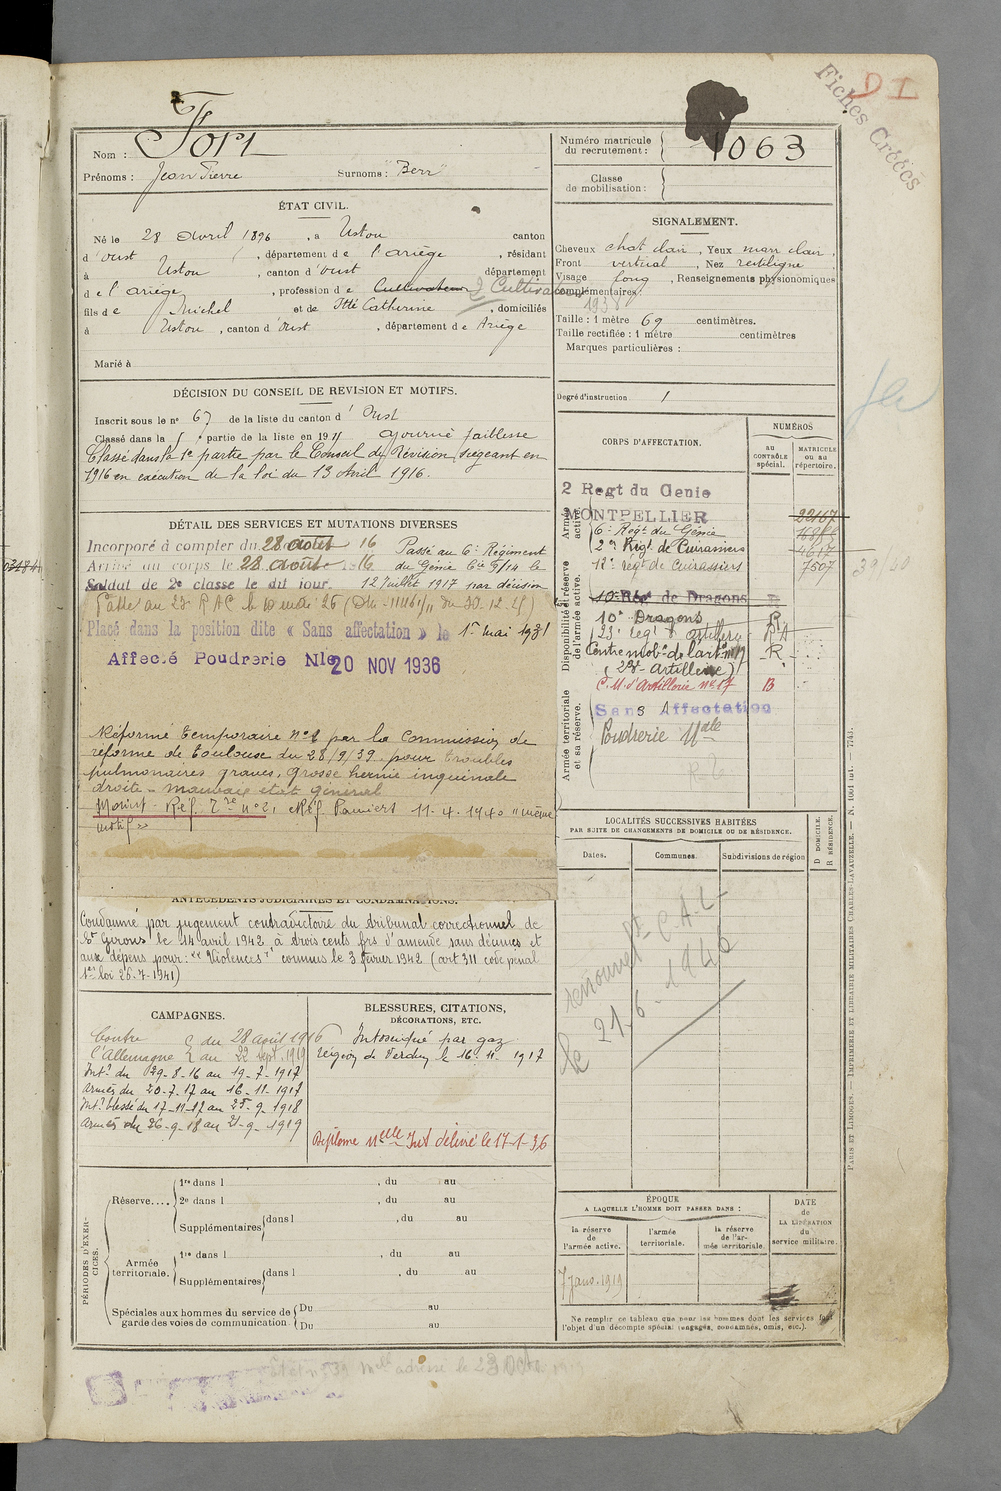 Fiches Créées
D I
Nom : Fort
Prénoms : Jean Pierre Surnoms : "Berr"
Numéro matricule du recrutement : 1063
Classe de mobilisation :
ÉTAT CIVIL.
Né le 28 Avril 1896, à Ustou canton
d'Oust, département de l'Ariège, résidant
à Ustou, canton d'Oust département
de l'Ariège, profession de Cultivateur Cultivateur
fils de Michel et de Itté Catherine, domiciliés
à Ustou, canton d'Oust, département de Ariège
Marié à
SIGNALEMENT.
Cheveux chat clair, Yeux marr clair,
Front vertical, Nez rectiligne
Visage long, Renseignements physionomiques
complémentaires :
1938
Taille : 1 mètre 69 centimètres.
Taille rectifiée : 1 mètre centimètres
Marques particulières :
Degré d'instruction 1
DÉCISION DU CONSEIL DE REVISION ET MOTIFS.
Inscrit sous le no 67 de la liste du canton d'Oust
Classé dans la 5 partie de la liste en 19 Ajourné faiblesse
Classé dans la 1e partie par le Conseil de Révision siégeant en
1916 en exécution de la loi du 13 Avril 1916.
DÉTAIL DES SERVICES ET MUTATIONS DIVERSES
Incorporé à compter du 28 août 16 Passé au 6e Régiment
Arrivé au corps le 28 août 16 du Génie Cie 9/14 le
Soldat de 2e classe le dit jour. 12 Juillet 1917 par décision
Passé au 23 RAC le 10 mai 26
Placé dans la position dite « Sans affectation » le 1er mai 1931
Affecté Poudrerie Nle 20 NOV 1936
Réformé temporaire No 2 par la Commission de
réforme de Toulouse du 28/9/39 pour troubles
pulmonaires graves, grosse hernie inguinale
droite - mauvais état général
Maint. Réf. Tre no 2, Réf. Pamiers 11.4.1940 "même
motif"
ANTÉCÉDENTS JUDICIAIRES ET CONDAMNATIONS.
Condamné par jugement contradictoire du tribunal correctionnel de
St Girons le 14 avril 1942 à trois cents frs d'amende sans décimes et
aux dépens pour : "Violences" commis le 3 février 1942 (art 311 code pénal
1re loi 26.7.1941)
CAMPAGNES.
Contre du 28 août 1916
l'Allemagne au 22 sept. 1919
Intr du 29-8-16 au 19-7-1917
Armées du 20-7-17 au 16-11-1917
Intr blessé du 17-11-17 au 25-9-1918
Armées du 26-9-18 au 21-9-1919
BLESSURES, CITATIONS,
DÉCORATIONS, ETC.
Intoxiqué par gaz
région de Verdun le 16.11.1917
Diplôme délivré le 17-1-36
CORPS D'AFFECTATION.
NUMÉROS
au CONTRÔLE spécial.
MATRICULE ou au répertoire.
Armée active.
2 Regt du Genie
MONTPELLIER 22167
6e Régt du Génie
2e Régt de Cuirassiers 4617
12e régt de Cuirassiers 7507
39/40
Disponibilité et réserve de l'armée active.
10e Rég de Dragons R
10e Dragons R
23e regt d'artillerie RA
Centre mobe de l'arte no 17 R
(23e Artillerie)
C.M. d'Artillerie no 17 B
Armée territoriale et sa réserve.
Sans Affectation
Poudrerie Nale
LOCALITÉS SUCCESSIVES HABITÉES
PAR SUITE DE CHANGEMENTS DE DOMICILE OU DE RÉSIDENCE.
D DOMICILE. R RÉSIDENCE.
Dates. Communes. Subdivisions de région
le 21-6-1946
PÉRIODES D'EXERCICES.
Réserve.... 1re dans l , du au
2e dans l , du au
Supplémentaires dans l , du au
Armée territoriale. 1re dans l , du au
Supplémentaires dans l , du au
Spéciales aux hommes du service de garde des voies de communication. Du au
Du au
ÉPOQUE
A LAQUELLE L'HOMME DOIT PASSER DANS :
la réserve de l'armée active.
l'armée territoriale.
la réserve de l'armée territoriale.
DATE de LA LIBÉRATION du service militaire.
7 janv. 1919
Ne remplir ce tableau que pour les hommes dont les services font
l'objet d'un décompte spécial (engagés, condamnés, omis, etc.).
PARIS ET LIMOGES. — IMPRIMERIE ET LIBRAIRIE MILITAIRES CHARLES-LAVAUZELLE. — N. 1001 — 7743.